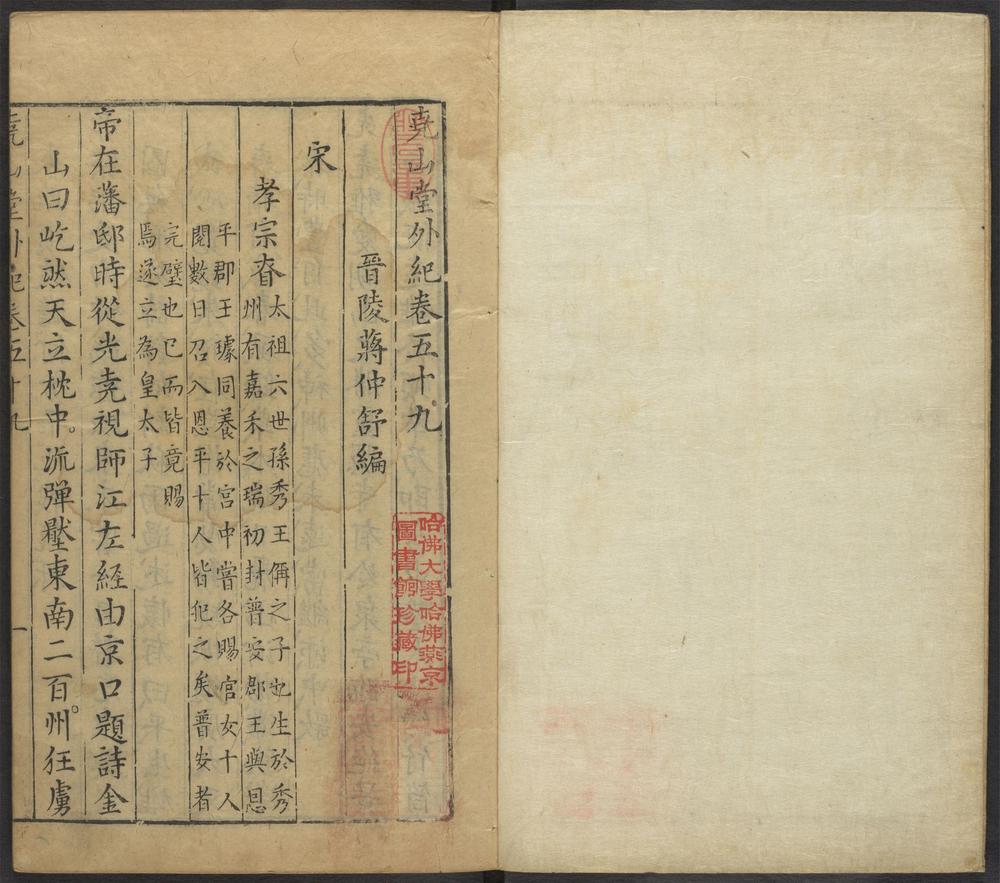 堯山堂外紀卷五十九
晉陵蔣仲舒編
宋
孝宗眘
太祖六世孫秀王偁之子也生於秀
州有嘉禾之瑞初封普安郡王與恩
平郡王璩同養於宮中嘗各賜官女十人
閱數日召入恩平十人皆犯之矣普安者
完璧也已而皆竟賜
焉遂立為皇太子
帝在藩邸時從光堯視師江左經由京口題詩金
山曰屹然天立枕中流彈壓東南二百州狂虜
堯山堂外紀卷五十九
一
哈佛大學哈佛燕京
圖書館珍藏印